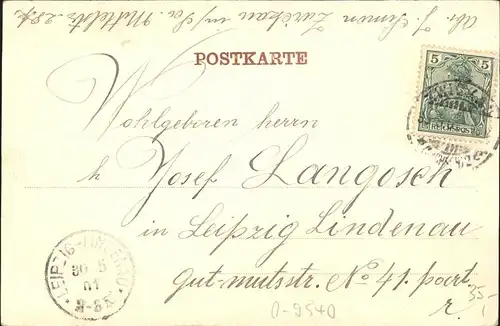 Abs. J. Simon Zwickau in/Sa. Mittelstr.
POSTKARTE
5 5
REICHSPOST
Wohlgeboren herrn
h Josef Langosch
in Leipzig Lindenau
gut-mutsstr. No 41. part
r.
LEIPZIG-LINDENAU
30 5
01
8-9V
0-9540